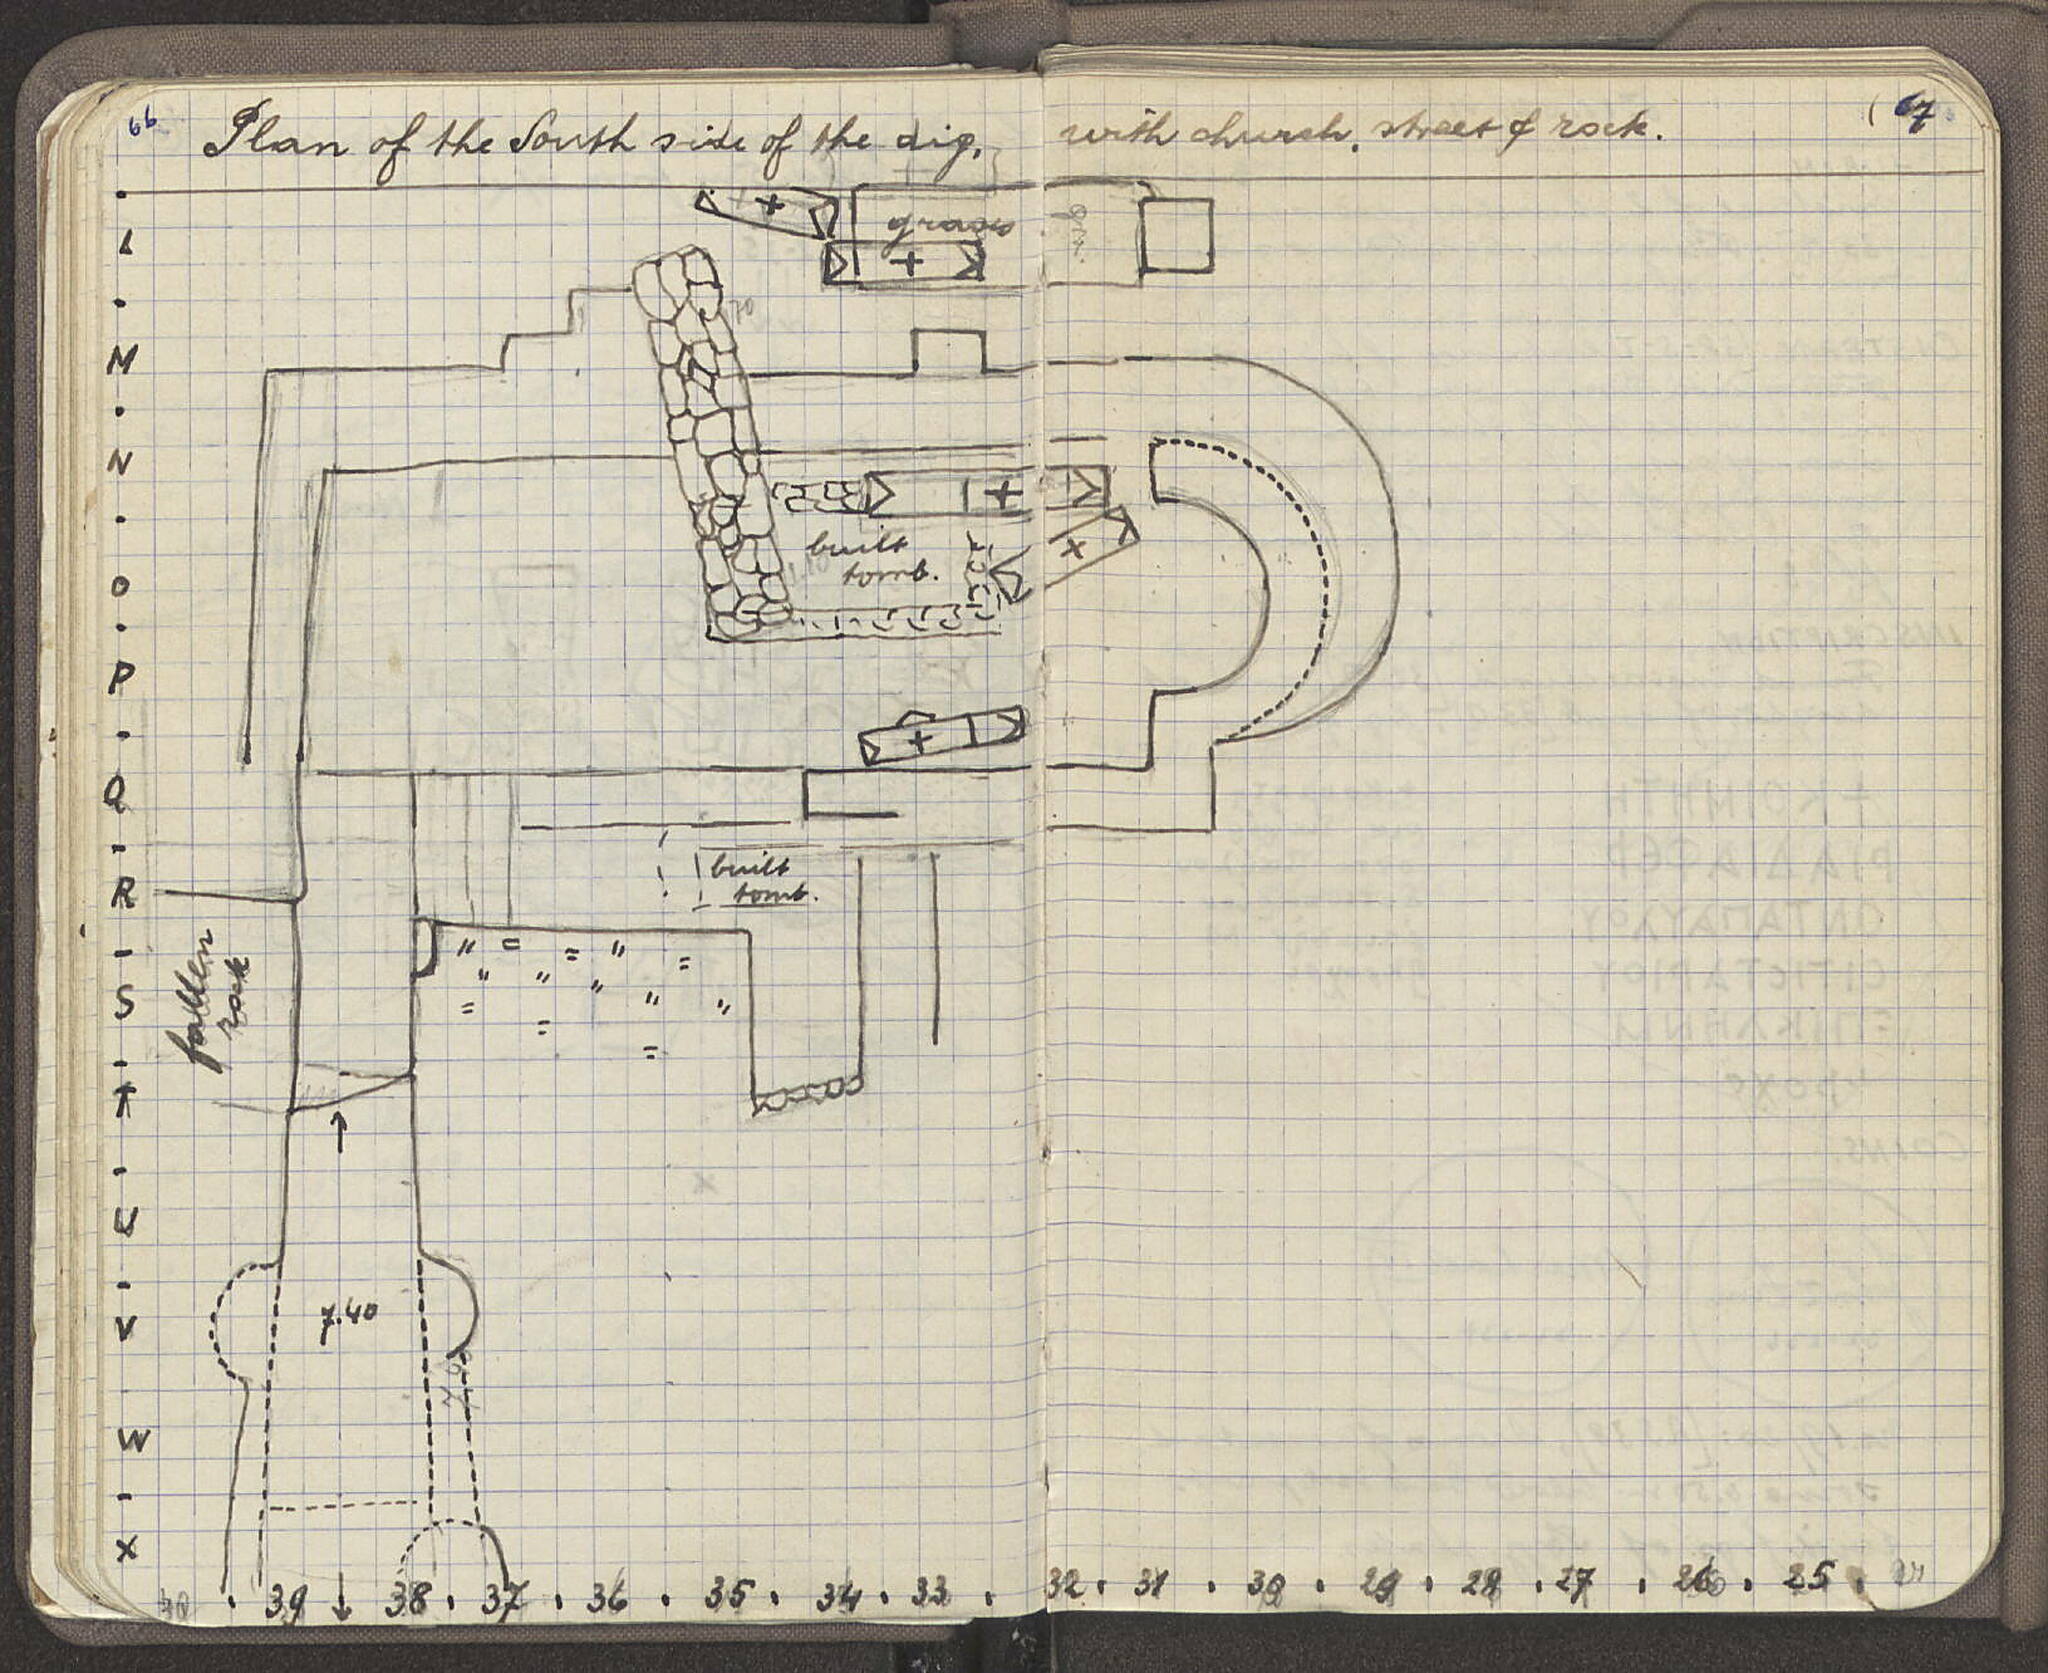 66
Plan of the South side of the dig, with church, street & rock.
67
L
M
N
O
P
Q
R
S
T
U
V
W
X
built
tomb.
built
tomb.
fallen
rock
7.40
39 38 37 36 35 34 33 32 31 30 29 28 27 26 25